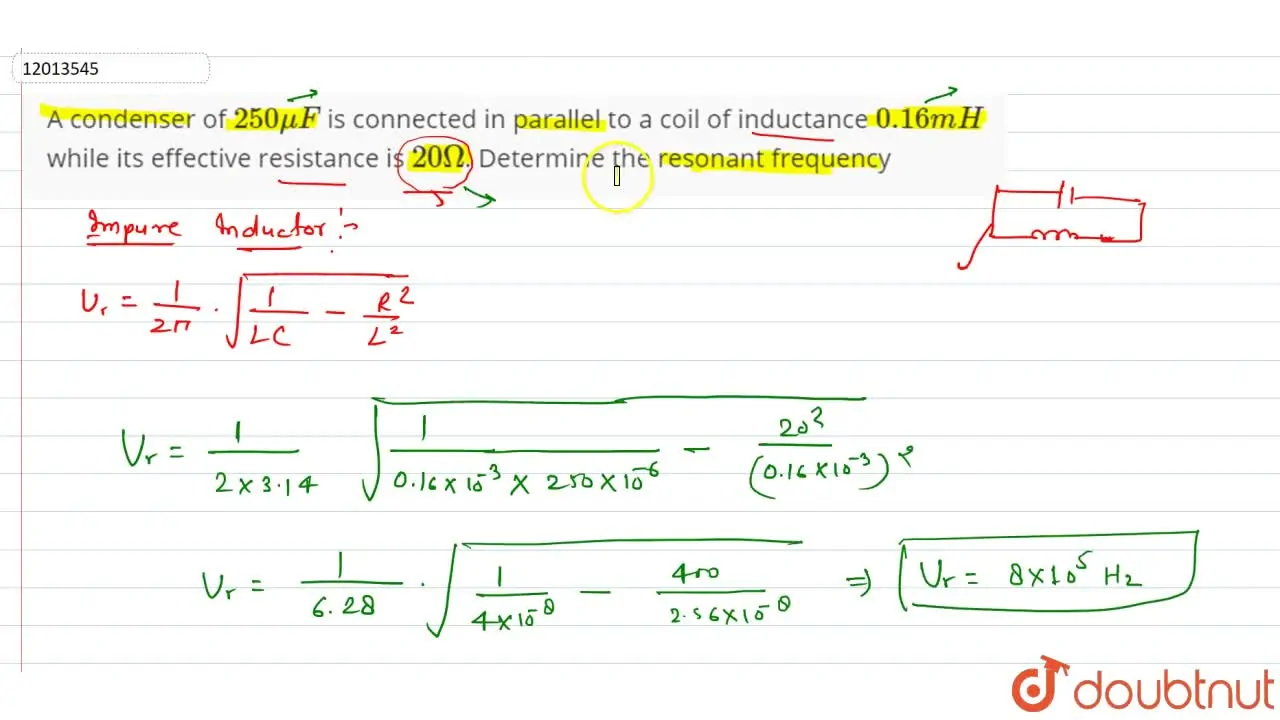 12013545
A condenser of 250μF is connected in parallel to a coil of inductance 0.16mH
while its effective resistance is 20Ω. Determine the resonant frequency
Impure Inductor :-
υr = 1/2π · √(1/LC - R²/L²)
υr = 1/(2×3.14) √(1/(0.16×10⁻³ × 250×10⁻⁶) - 20²/(0.16×10⁻³)²)
υr = 1/6.28 · √(1/(4×10⁻⁸) - 400/(2.56×10⁻⁸)) ⇒ υr = 8×10⁵ Hz
doubtnut